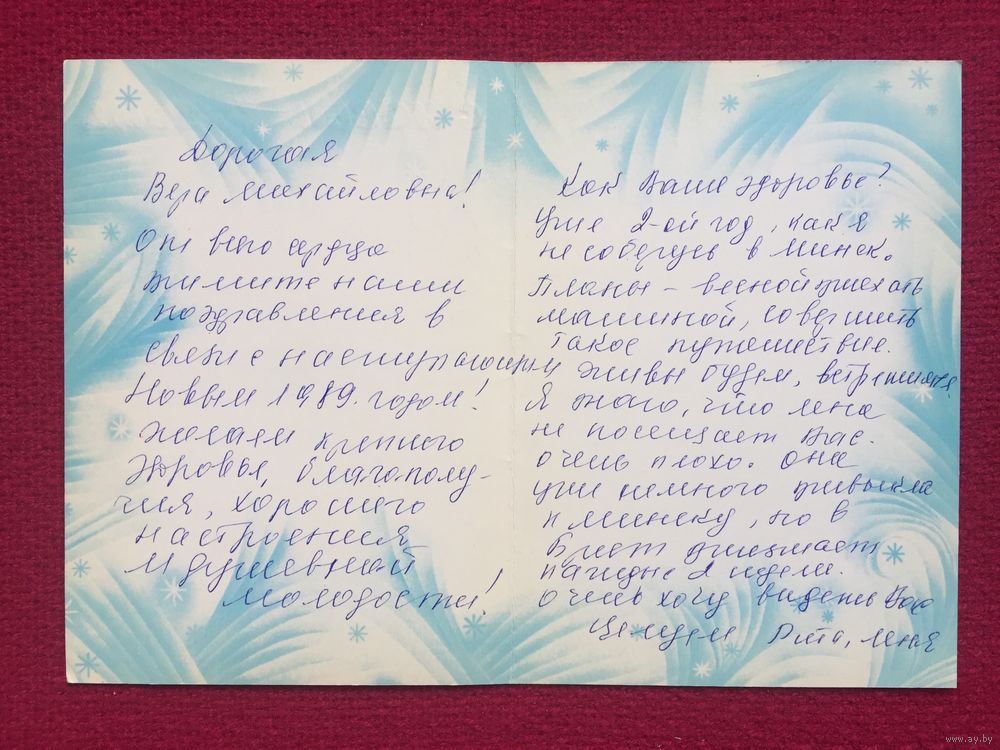 Дорогая
Вера Михайловна!
От всего сердца
примите наши
поздравления в
связи с наступающим
Новым 1989. годом!
Желаем крепкого
здоровья, благополу-
чия, хорошего
настроения
и душевной
молодости!
Как Ваше здоровье?
Уже 2-ой год, как я
не соберусь в Минск.
Планы - весной приехать
машиной, совершить
такое путешествие.
Живы будем, встретимся.
Я знаю, что Лена
не посещает Вас.
Очень плохо. Она
уже немного привыкла
к Минску, но в
Брест приезжает
каждые 2 недели.
Очень хочу видеть Вас
Целуем Рита, Лена
www.ay.by